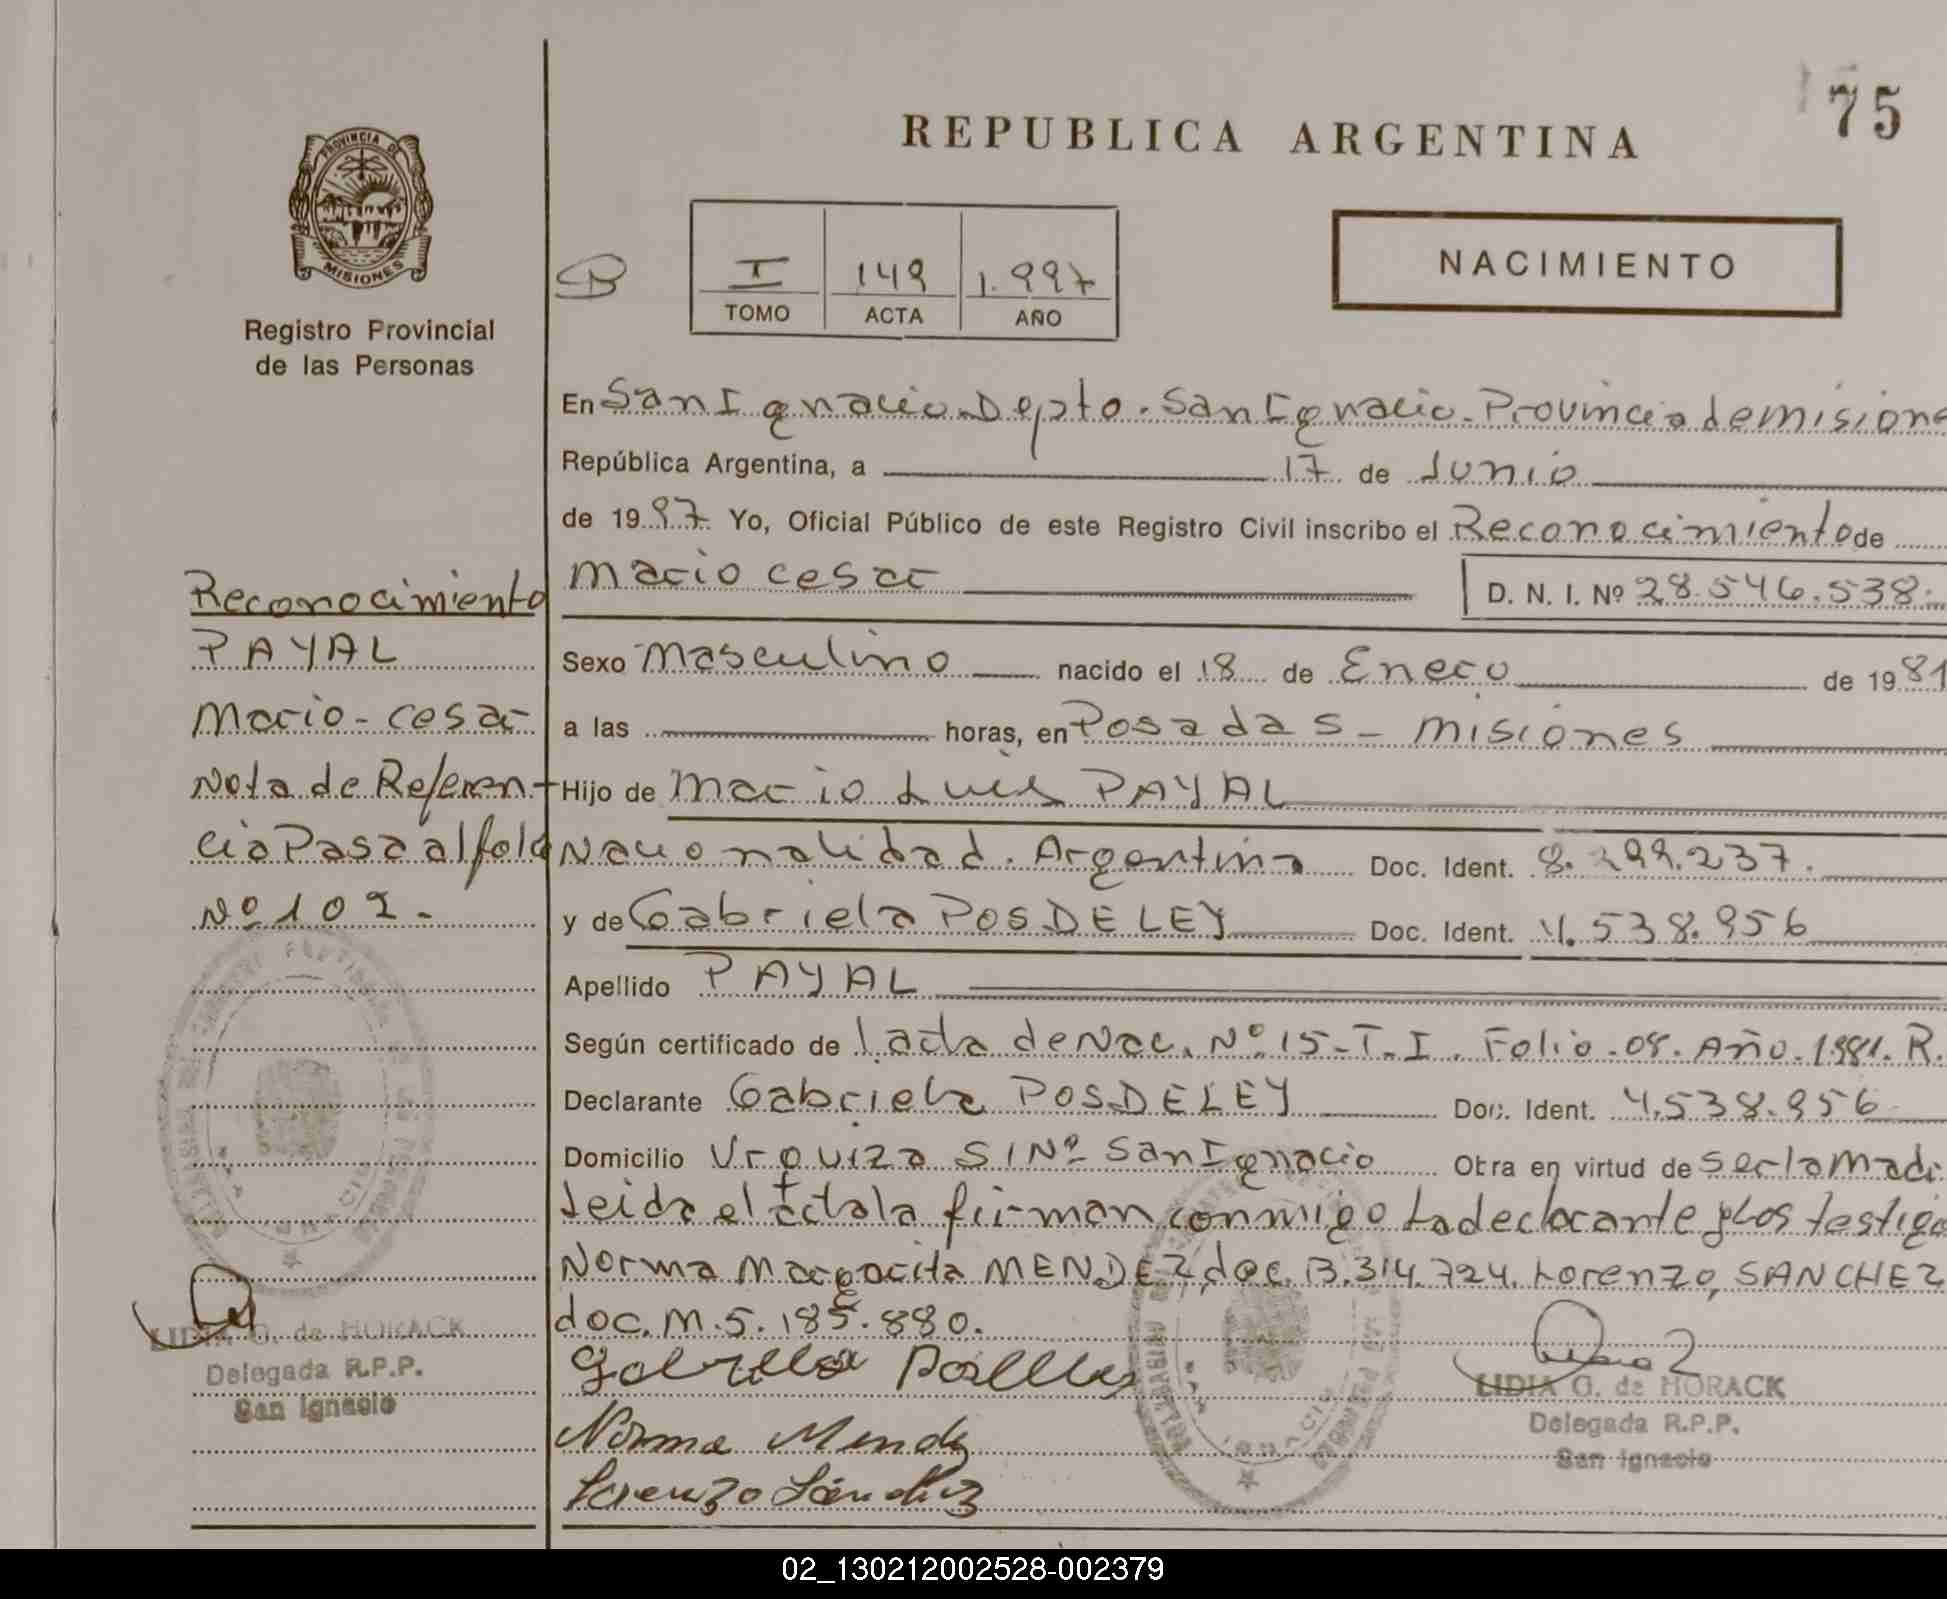 75
REPUBLICA ARGENTINA
PROVINCIA DE
MISIONES
Registro Provincial
de las Personas
B
I 149 1.997
TOMO ACTA AÑO
NACIMIENTO
En San Ignacio Depto. San Ignacio Provincia de misione
República Argentina, a 17 de Junio
de 1997 Yo, Oficial Público de este Registro Civil inscribo el Reconocimiento de
Mario cesar D. N. I. Nº 28.546.538.
Sexo Masculino nacido el 18 de Enero de 1981
a las horas, en Posadas - misiones
Hijo de Mario Luis PAYAL
Nacionalidad. Argentina Doc. Ident. 8.299.237.
y de Gabriela POSDELEY Doc. Ident. 4.538.956
Apellido PAYAL
Según certificado de 1 acta de Nac. Nº 15-T.I. Folio.08. Año.1981. R.
Declarante Gabriela POSDELEY Doc. Ident. 4.538.956
Domicilio Urquiza S/Nº San Ignacio Obra en virtud de ser la madr
Leida el acta la firman conmigo La declarante y Los testigo
Norma Margarita MENDEZ, doc. B.314.724. Lorenzo, SANCHEZ
doc. M. 5.185.880.
Norma Mendez
Lorenzo Sánchez
LIDIA G. de HORACK
Delegada R.P.P.
San Ignacio
Reconocimiento
PAYAL
Mario - Cesar
Nota de Referen-
cia Pasa al folio
Nº 102.
LIDIA G. de HORACK
Delegada R.P.P.
San Ignacio
02_130212002528-002379